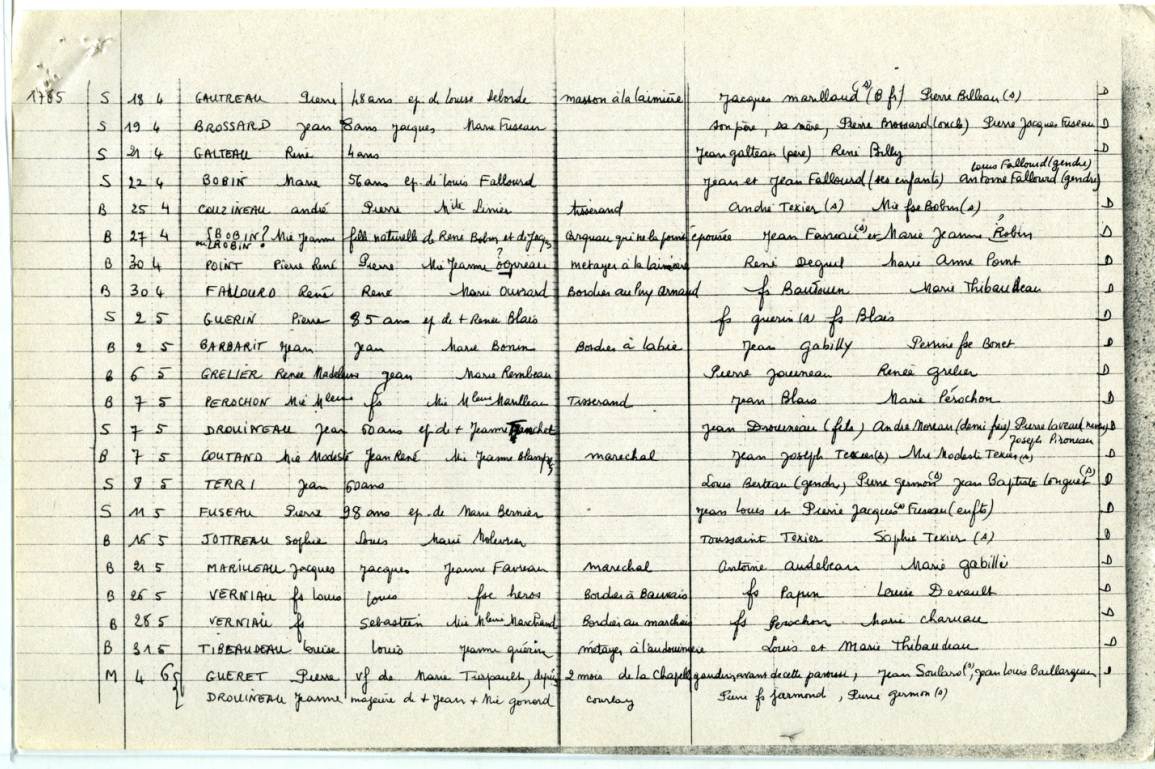 1785 S 18 4 GAUTREAU Pierre 48 ans ep. de Louise Deborde masson à la lainière Jacques marilland (s) (B fr) Pierre Billeau (s) D
S 19 4 BROSSARD Jean 8 ans Jacques Marie Fuseau son père, sa mère, Pierre Brossard (oncle) Pierre Jacques Fuseau D
S 21 4 GALTEAU René 4 ans Jean galteau (père) René Billy D
Louis Fallourd (gendre)
S 22 4 BOBIN Marie 56 ans ep. de Louis Fallourd Jean et Jean Fallourd (ses enfants) Antoine Fallourd (gendre)
B 25 4 COUZINEAU andré Pierre Linier tisserand André Texier (s) Mie fse Bobin (s) D
B 27 4 BOBIN? Mie Jeanne fille naturelle de René Bobin et de épousée Jean et Marie Jeanne Robin ? D
ou ROBIN
B 30 4 POINT Pierre René Pierre Mie Jeanne ? métayer à la lainière René Deguil Marie Anne Point D
B 30 4 FALLOURD René René Marie Ouvrard Bordier au Puy Arnaud fs Baudouin Marie Thibaudeau D
S 2 5 GUERIN Pierre 85 ans ep de + Renée Blais fs guerin (s) fs Blais D
B 2 5 BARBARIT Jean Jean Marie Bonin Bordier à labie Jean Gabilly Perrine fse Bonet D
B 6 5 GRELIER Renée Madeleine Jean Marie Rembeau Pierre Jouineau Renée Grelier D
B 7 5 PEROCHON Mie Mleine fs Mie Mleine Marilleau Tisserand Jean Blais Marie Pérochon D
S 7 5 DROUINEAU Jean 60 ans ep d + Jeanne Jean Drouineau (fils) André Moreau (demi frère) Pierre Laveau (neveu) D
Joseph Pironeau
B 7 5 COUTAND Mie Modeste Jean René Mie Jeanne marechal Jean Joseph Texier (s) Mie Modeste Texier (s) D
S 8 5 TERRI Jean 60 ans Louis Berteau (gendre, Pierre germon (s) Jean Baptiste Longuet (s) D
S 11 5 FUSEAU Pierre 98 ans ep. de Marie Bernier Jean Louis et Pierre Jacques (s) Fuseau (enfts) D
B 16 5 JOTTREAU Sophie Louis Marie Toussaint Texier Sophie Texier (s) D
B 21 5 MARILLEAU Jacques Jacques Jeanne Favreau marechal Antoine Audebeau Marie gabillé D
B 26 5 VERNIAU fs Louis Louis fse heros Bordier à Bauvais fs Papin Louise Devault D
B 28 5 VERNIAU fs Sebastien Mie Mleine Marchand Bordier au marchais fs Perochon Marie charuau D
B 31 5 TIBEAUDEAU Louise Louis Jeanne guérin métayer à l'audouinière Louis et Marie Thibaudeau D
M 4 6 GUERET Pierre vf de Marie Turpault, depuis 2 mois de la Chapelle gaudin, avant de cette paroisse, Jean Soulard (s), Jean Louis Baillargeau D
DROUINEAU Jeanne majeure d + Jean + Mie gonord courlay Pierre fs farmond, Pierre germon (s)